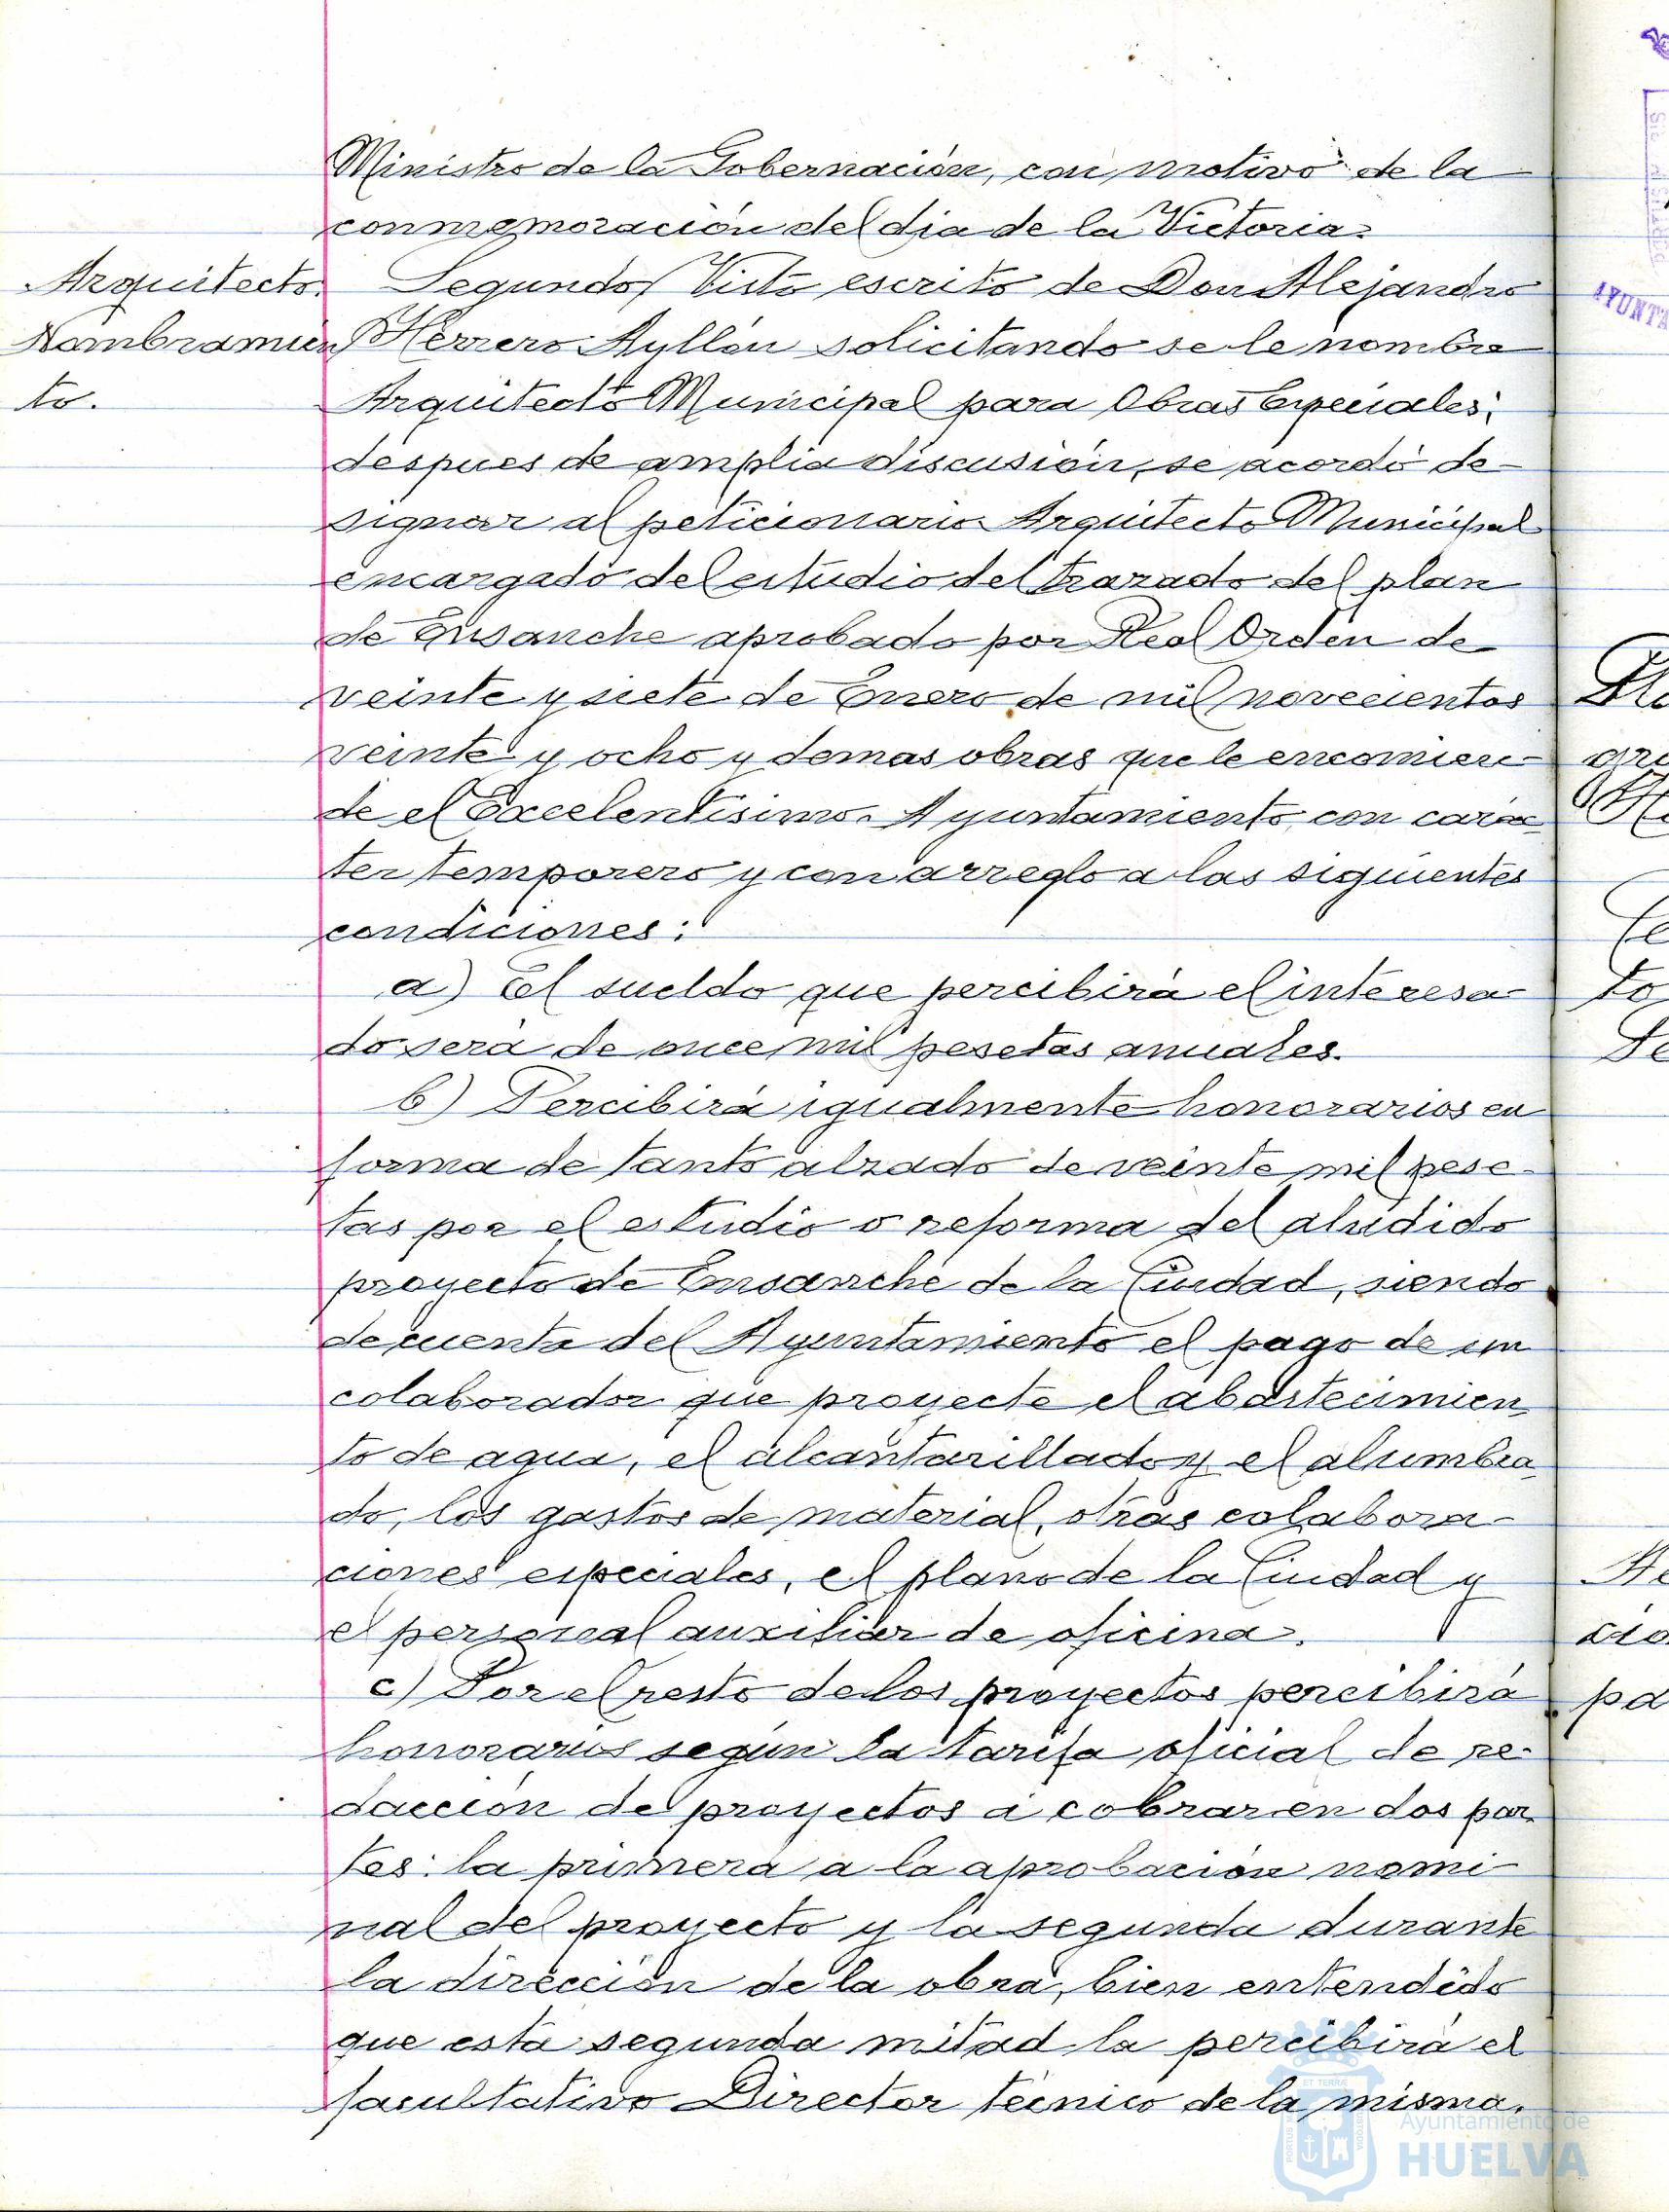 Ministro de la Gobernación, con motivo de la
conmemoración del dia de la Victoria.
Arquitecto.
Nombramien
to.
Segundo/ Visto escrito de Don Alejandro
Herrero Ayllón solicitando se le nombre
Arquitecto Municipal para Obras Especiales;
despues de amplia discusión, se acordó de-
signar al peticionario Arquitecto Municipal
encargado del estudio del trazado del plan
de Ensanche aprobado por Real Orden de
veinte y siete de Enero de mil novecientos
veinte y ocho y demas obras que le encomien-
de el Excelentisimo Ayuntamiento, con carác
ter temporero y con arreglo a las siguientes
condiciones:
a) El sueldo que percibirá el interesa-
do será de once mil pesetas anuales.
b) Percibirá igualmente honorarios en
forma de tanto alzado de veinte mil pese-
tas por el estudio o reforma del aludido
proyecto de Ensanche de la Ciudad, siendo
de cuenta del Ayuntamiento el pago de un
colaborador que proyecte el abastecimien
to de agua, el alcantarillado y el alumbra
do, los gastos de material, otras colabora-
ciones especiales, el plano de la Ciudad y
el personal auxiliar de oficina.
c) Por el resto de los proyectos percibirá
honorarios según la tarifa oficial de re-
dacción de proyectos a cobrar en dos par
tes: la primera a la aprobación nomi-
nal del proyecto y la segunda durante
la dirección de la obra, bien entendido
que esta segunda mitad la percibirá el
facultativo Director técnico de la misma.
Ayuntamiento de
HUELVA
AYUNTA